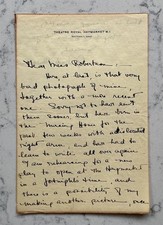 THEATRE ROYAL HAYMARKET
Dear Miss Robertson
Here, at last is that very
bad photograph of mine
together with a new recent
one. Sorry not to have sent
them sooner but have been in
the Nursing Home for the
past few weeks with a
right arm, and have had to
learn to write all over again.
I am rehearsing for a new
play to open at the Haymarket
in a fortnight's time, and
there is a possibility of my
making another picture, once